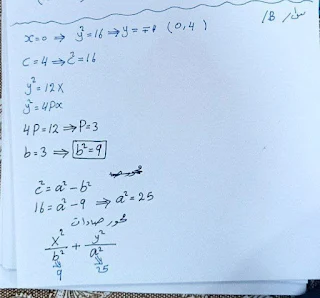 س/ B/
x=0 ⇒ y²=16 ⇒ y=∓4 (0,4)
C=4 ⇒ c²=16
y²=12x
y²=4px
4P=12 ⇒ P=3
b=3 ⇒ b²=9
c²=a²-b²
16=a²-9 ⇒ a²=25
محور صادات
x²/b² + y²/a²
9 25